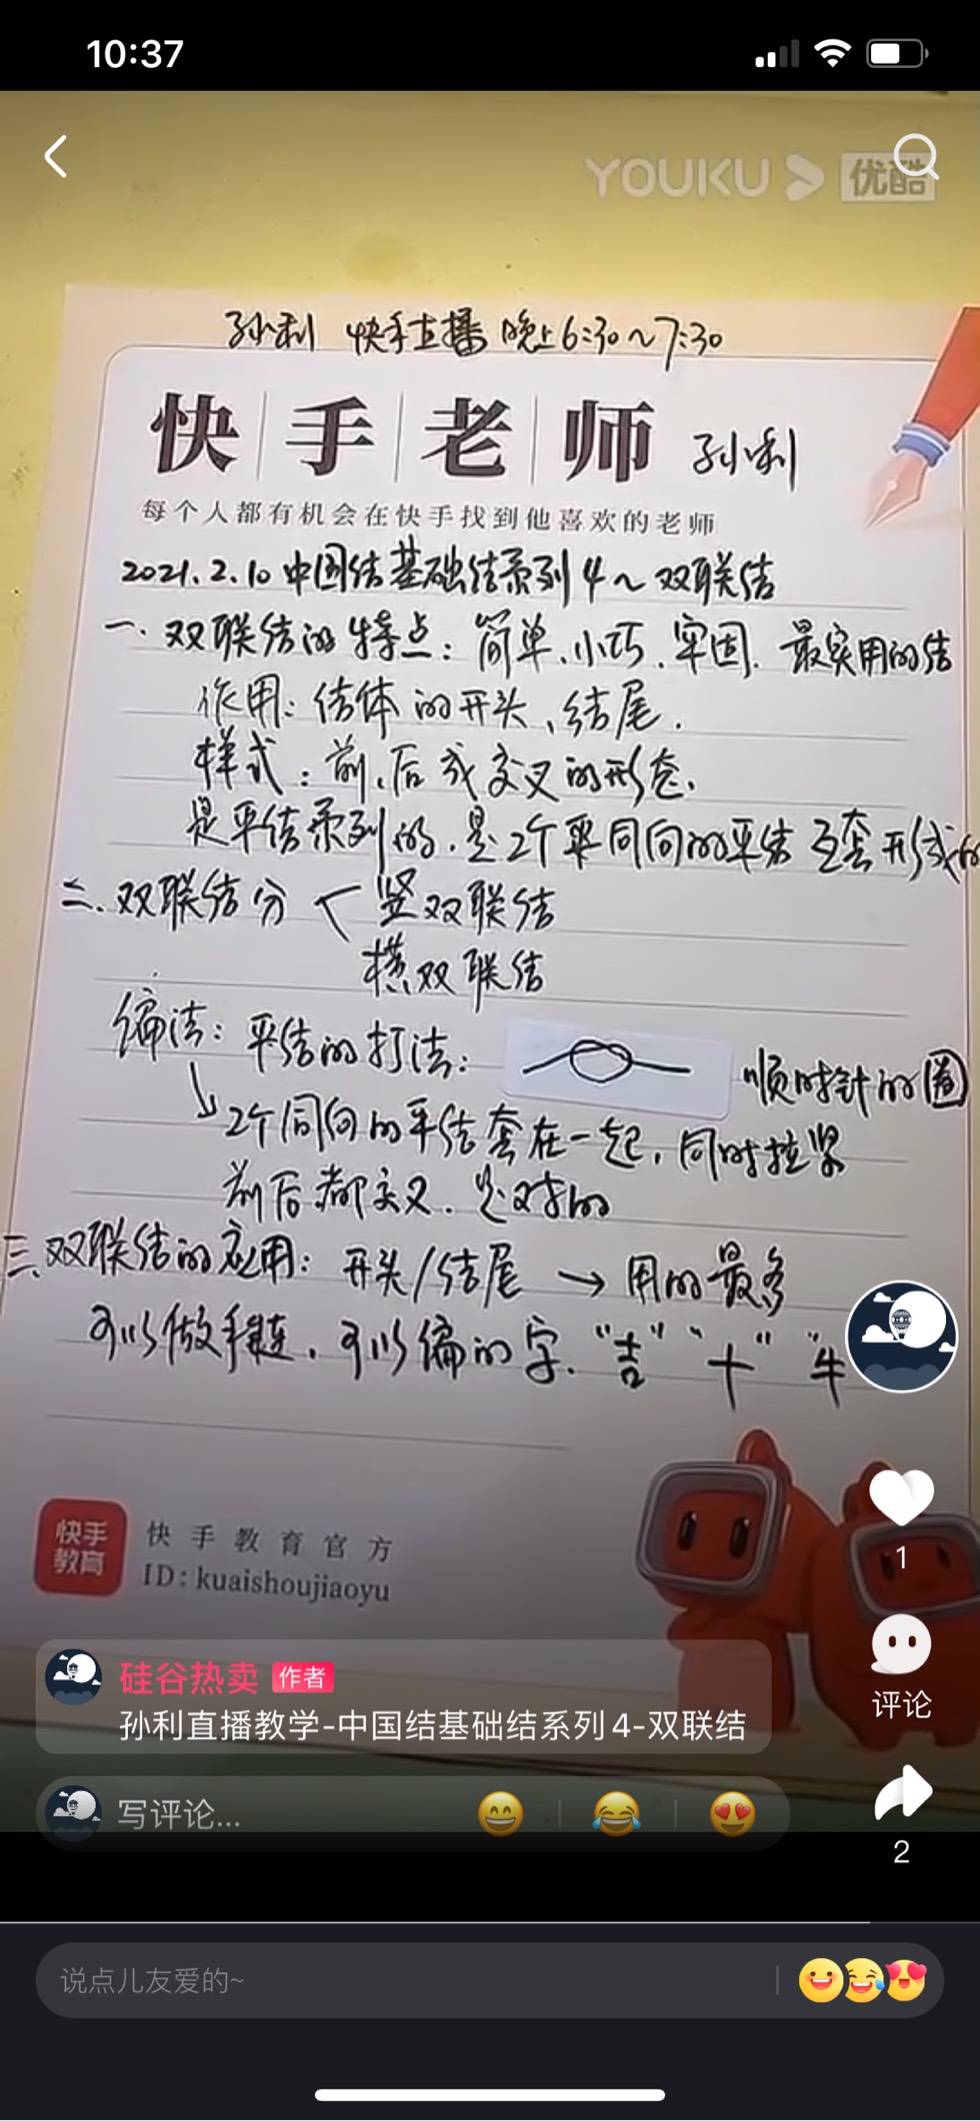 10:37
YOUKU 优酷
孙利 快手直播 晚上6:30~7:30
快手老师 孙利
每个人都有机会在快手找到他喜欢的老师
2021.2.10 中国结基础结系列4~双联结
一、双联结的特点：简单、小巧、牢固、最实用的结
作用：结体的开头、结尾.
样式：前、后成交叉的形态.
是平结系列的.是2个同向的平结互套形成的
二、双联结分 竖双联结
横双联结
编法：平结的打法： 顺时针的圈
2个同向的平结套在一起，同时拉紧
前后都交叉.是对的
三、双联结的应用：开头/结尾→用的最多
可以做手链，可以编的字."吉" "十" "牛
快手教育 快手教育官方
ID:kuaishoujiaoyu
1
硅谷热卖 作者
孙利直播教学-中国结基础结系列4-双联结
评论
写评论...
2
说点儿友爱的~